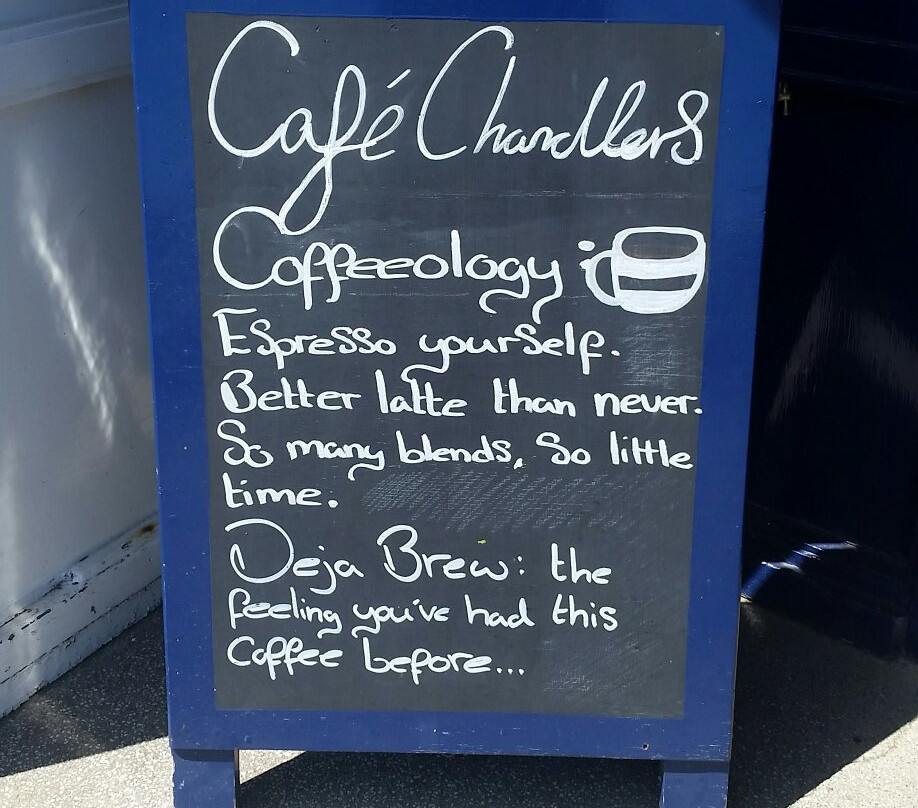 Café Chandlers
Coffeeology
Espresso yourself.
Better latte than never.
So many blends, So little
time.
Deja Brew: the
feeling you've had this
Coffee before...